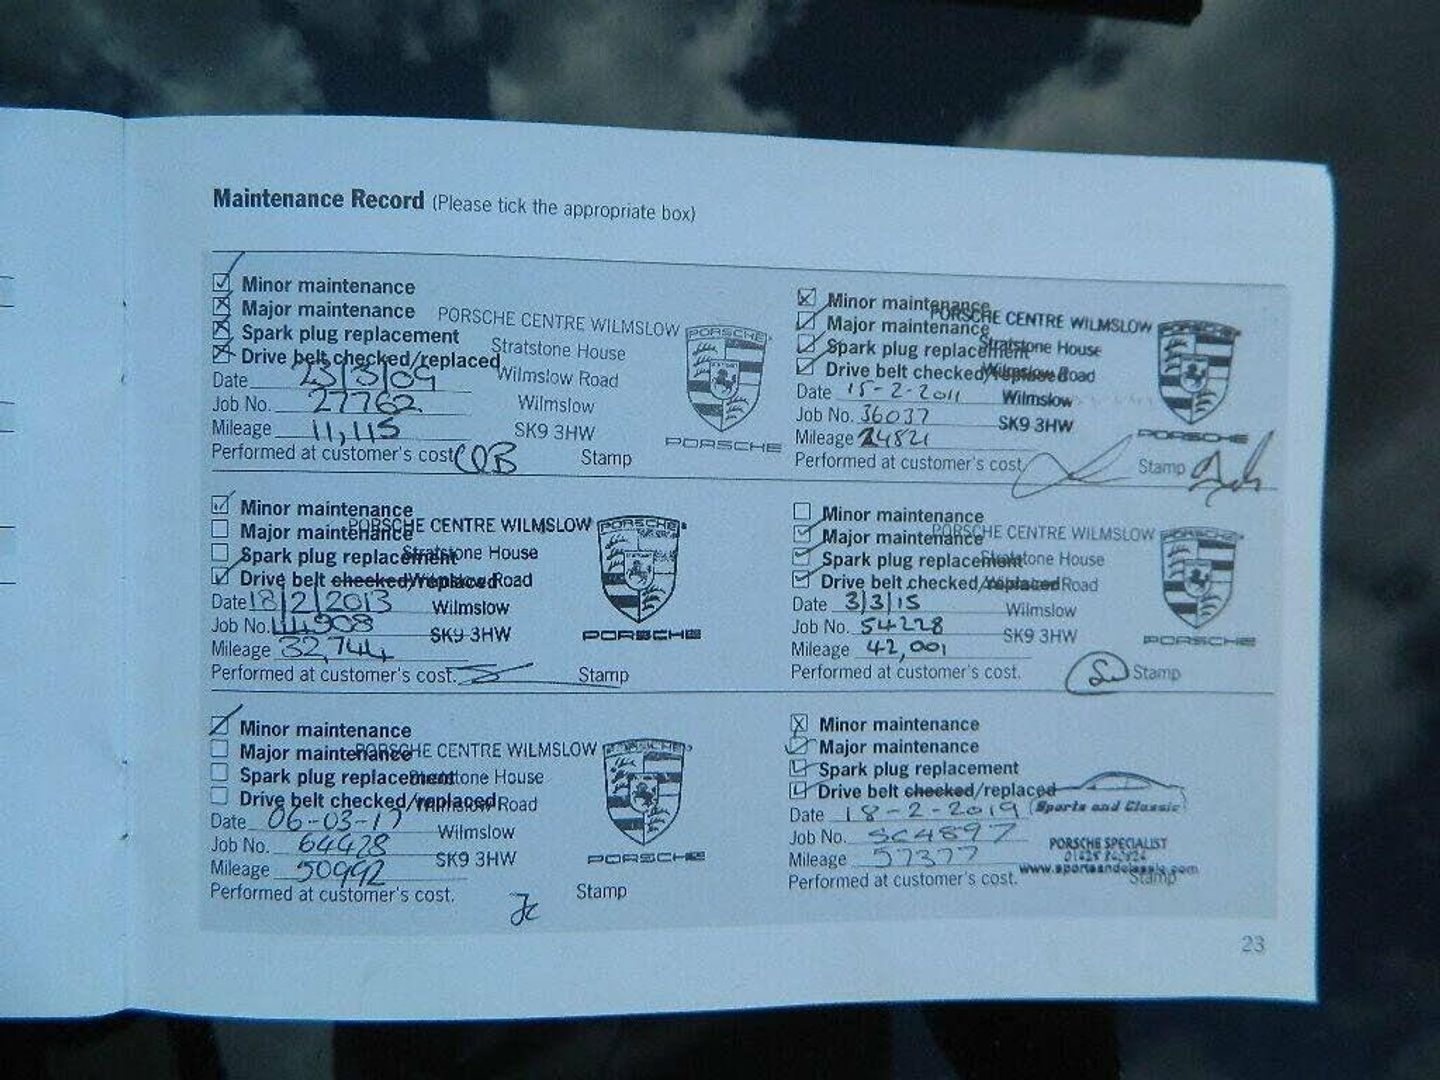 Maintenance Record (Please tick the appropriate box)
Minor maintenance
Major maintenance
Spark plug replacement
Drive belt checked/replaced
Date 23/3/09
Job No. 27762
Mileage 11,115
Performed at customer's cost
Stamp
PORSCHE CENTRE WILMSLOW
Stratstone House
Wilmslow Road
Wilmslow
SK9 3HW
PORSCHE
PORSCHE
Minor maintenance
Major maintenance
Spark plug replacement
Drive belt checked/replaced
Date 15-2-2011
Job No. 36037
Mileage 24821
Performed at customer's cost
Stamp
PORSCHE CENTRE WILMSLOW
Stratstone House
Wilmslow Road
Wilmslow
SK9 3HW
PORSCHE
PORSCHE
Minor maintenance
Major maintenance
Spark plug replacement
Drive belt checked/replaced
Date 18/2/2013
Job No. 44908
Mileage 32,744
Performed at customer's cost.
Stamp
PORSCHE CENTRE WILMSLOW
Stratstone House
Wilmslow Road
Wilmslow
SK9 3HW
PORSCHE
PORSCHE
Minor maintenance
Major maintenance
Spark plug replacement
Drive belt checked/replaced
Date 3/3/15
Job No. 54228
Mileage 42,001
Performed at customer's cost.
Stamp
PORSCHE CENTRE WILMSLOW
Stratstone House
Wilmslow Road
Wilmslow
SK9 3HW
PORSCHE
PORSCHE
Minor maintenance
Major maintenance
Spark plug replacement
Drive belt checked/replaced
Date 06-03-17
Job No. 64428
Mileage 50992
Performed at customer's cost.
Stamp
PORSCHE CENTRE WILMSLOW
Stratstone House
Wilmslow Road
Wilmslow
SK9 3HW
PORSCHE
PORSCHE
Minor maintenance
Major maintenance
Spark plug replacement
Drive belt checked/replaced
Date 18-2-2019
Job No. SC4897
Mileage 57377
Performed at customer's cost.
Stamp
Sports and Classic
PORSCHE SPECIALIST
www.sportsandclassic.com
23